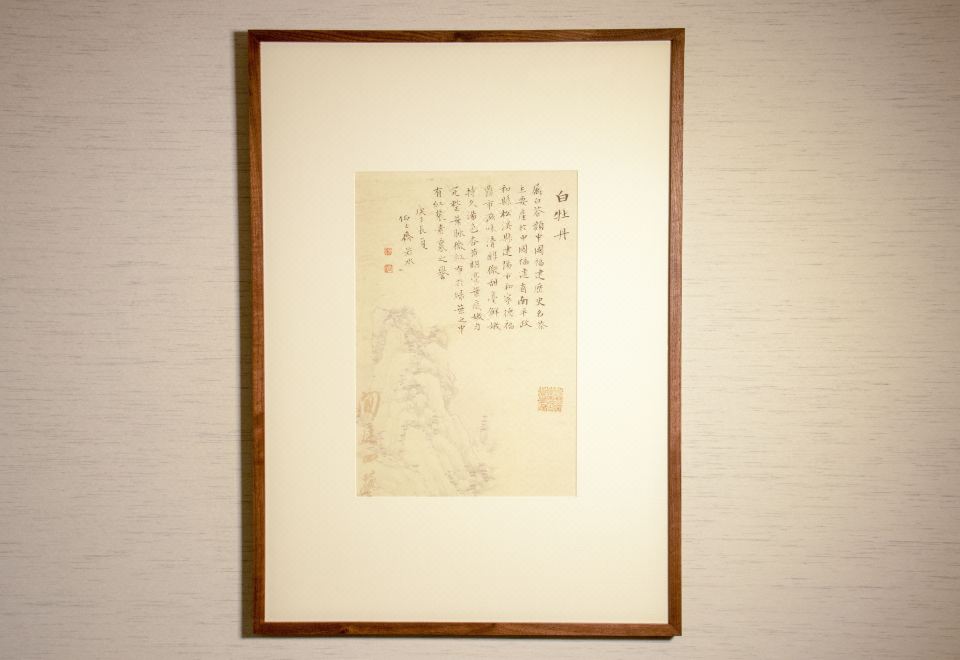 白牡丹
屬白茶類中國福建歷史名茶
主要產於中國福建省南平政
和縣松溪縣建陽市和寧德福
鼎市滋味清醇微甜毫鮮嫩
持久湯色杏黃明亮葉底嫩勻
完整葉脈微紅布於綠葉之中
有紅裝素裹之譽
戊子長夏